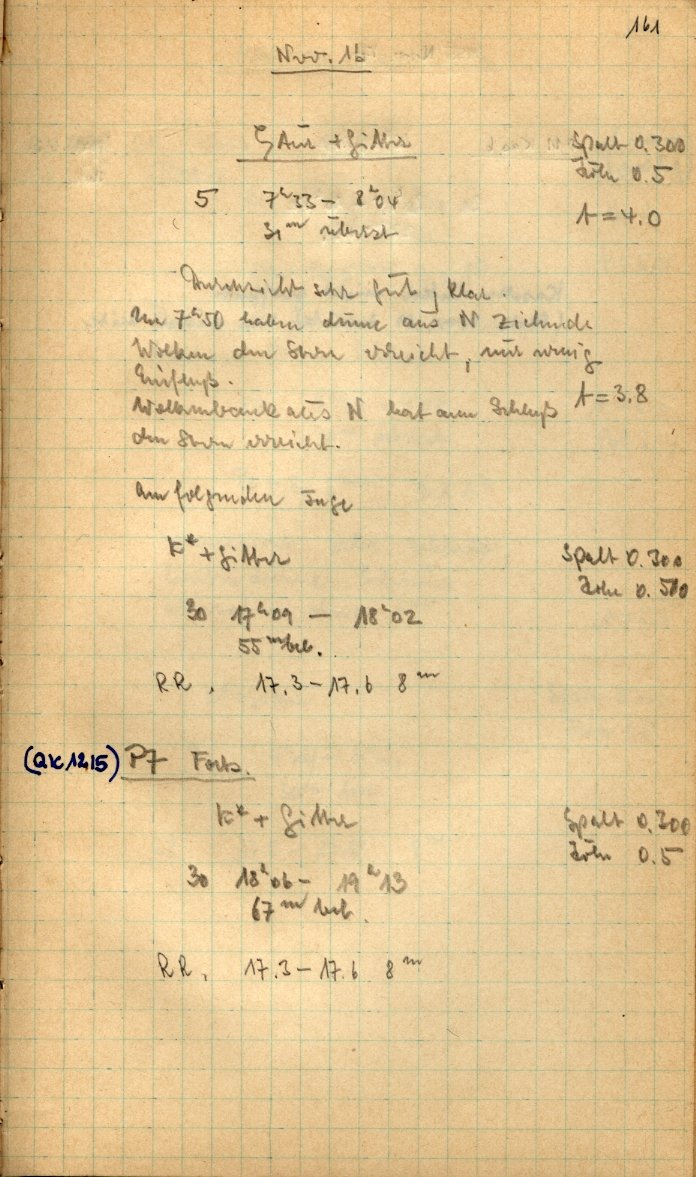 161
Nov. 16
ζ Aur + Gitter
Spalt 0.300
Höhe 0.5
5 7ʰ33 – 8ʰ04
t = 4.0
31ᵐ übersst
Durchsicht sehr gut, klar.
Um 7ʰ50 haben dünne aus N ziehende
Wolken den Stern erreicht, nur wenig
Einfluß.
t = 3.8
Wolkenbank aus N hat am Schluß
den Stern erreicht.
Am folgenden Tage
K* + Gitter
Spalt 0.300
Höhe 0.500
30 17ʰ09 – 18ʰ02
55ᵐ bel.
RR. 17.3 – 17.6 8ᵐ
(QK1215) P7 Forts.
K* + Gitter
Spalt 0.300
Höhe 0.5
30 18ʰ06 – 19ʰ13
67ᵐ bel.
RR. 17.3 – 17.6 8ᵐ